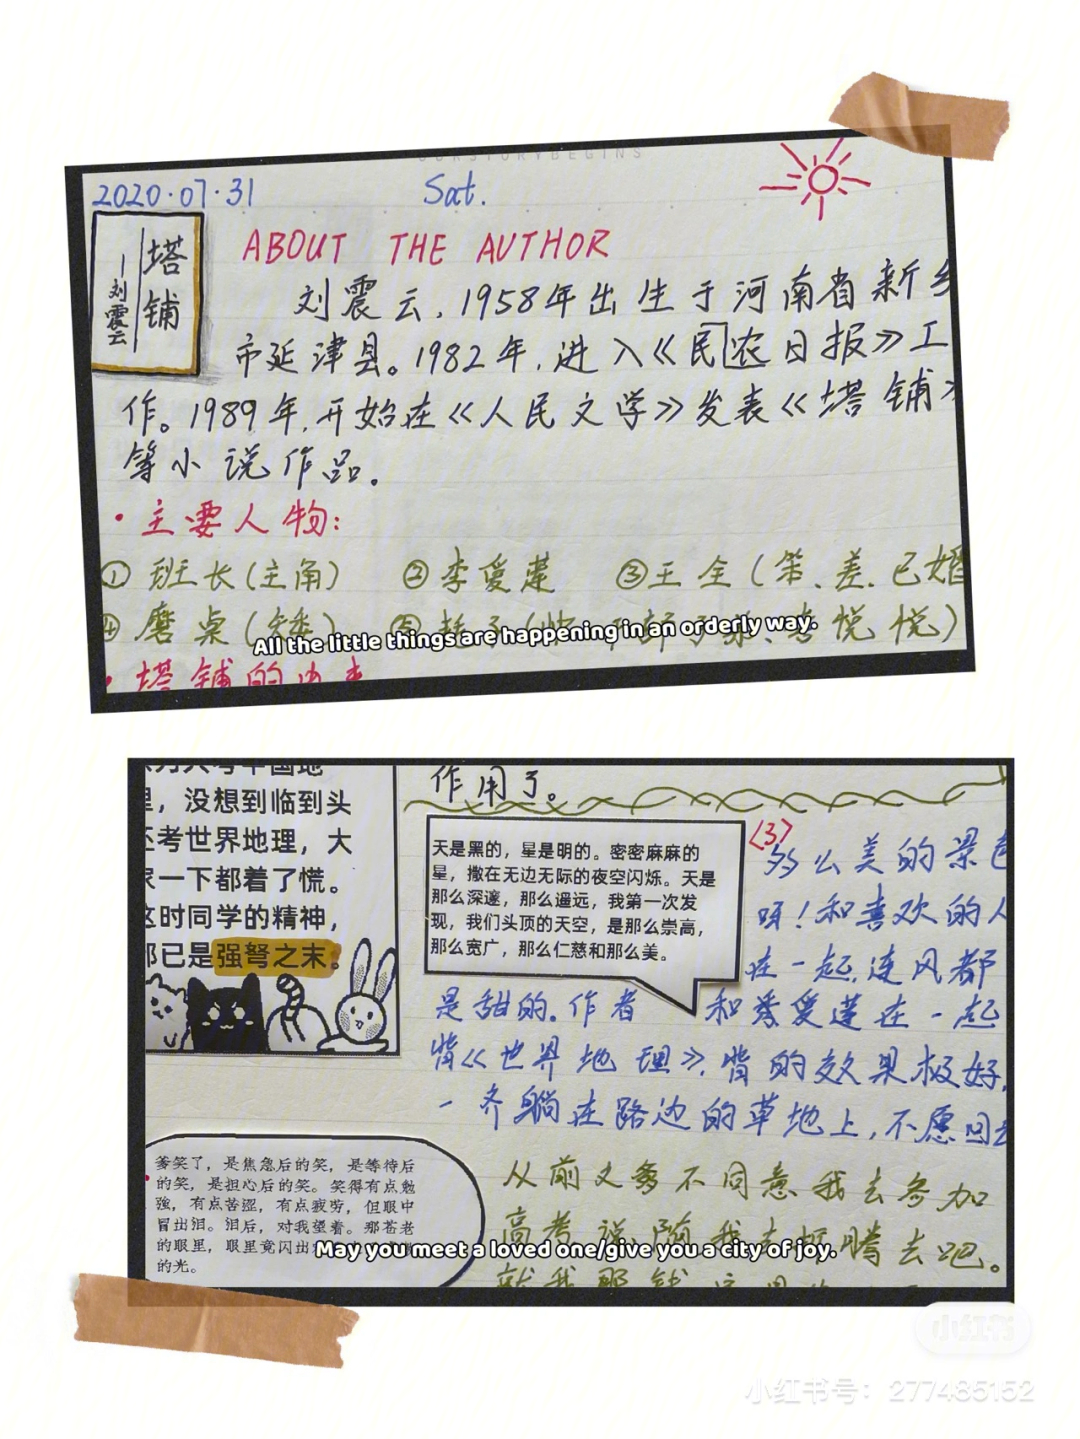 OURSTORYBEGINS
2020.07.31 Sat.
塔铺
—刘震云
ABOUT THE AUTHOR
刘震云，1958年出生于河南省新乡
市延津县。1982年，进入《民农日报》工
作。1989年，开始在《人民文学》发表《塔铺》
等小说作品。
·主要人物：
①班长(主角) ②李爱莲 ③王全(笨、差、已婚
④磨桌(矮) ⑤耗子 悦悦)
All the little things are happening in an orderly way.
·塔铺的由来
里，没想到临到头
还考世界地理，大
家一下都着了慌。
这时同学的精神，
都已是强弩之末。
作用了。
天是黑的，星是明的。密密麻麻的
星，撒在无边无际的夜空闪烁。天是
那么深邃，那么遥远，我第一次发
现，我们头顶的天空，是那么崇高，
那么宽广，那么仁慈和那么美。
〈3〉
多么美的景色
呀！和喜欢的人
在一起，连风都
是甜的。作者和李爱莲在一起
背《世界地理》，背的效果极好，
一齐躺在路边的草地上，不愿回去
爹笑了，是焦急后的笑，是等待后
的笑，是担心后的笑。笑得有点勉
强，有点苦涩，有点疲劳，但眼中
冒出泪。泪后，对我望着。那苍老
的眼里，眼里竟闪出
的光。
从前父爹不同意我去参加
高考，说随我去折腾去吧。
May you meet a loved one/give you a city of joy.
小红书
小红书号：277485152